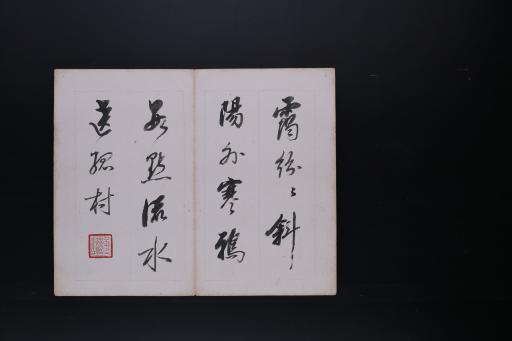 靄紛〻斜
陽外寒鴉
數點流水
遶孤村